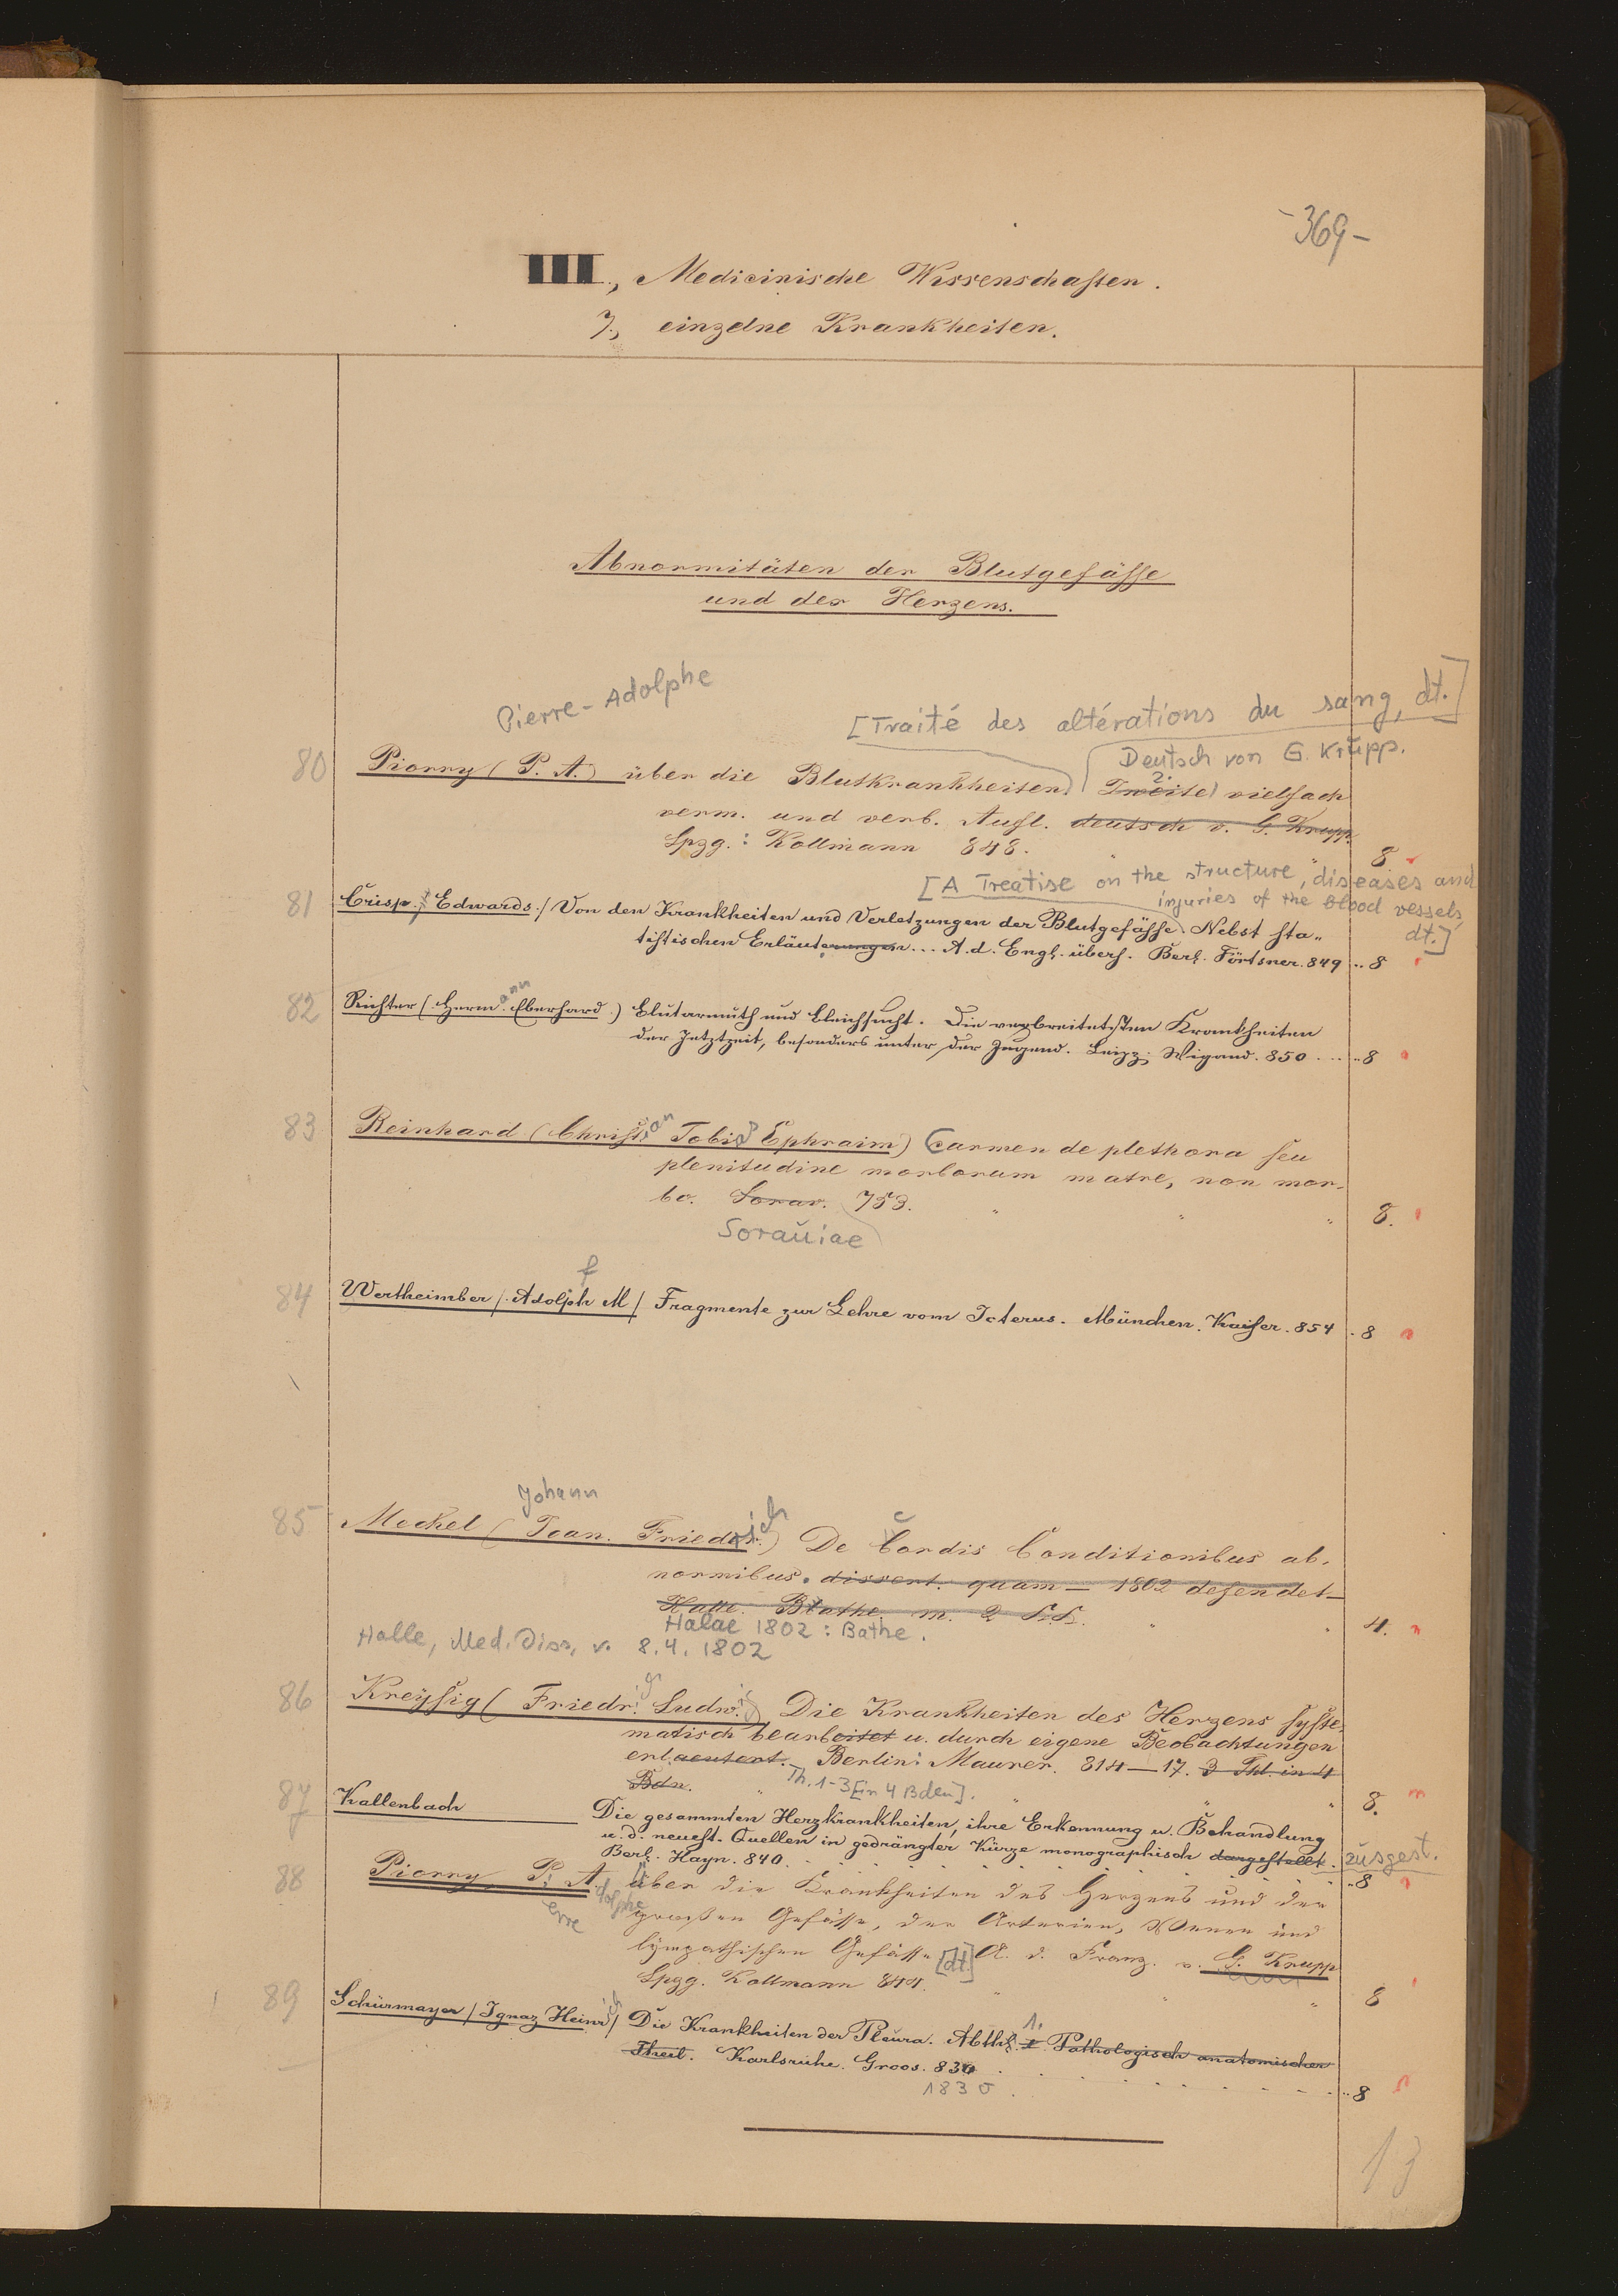 -369-
III., Medicinische Wissenschaften.
7., einzelne Krankheiten.
Abnormitäten der Blutgefässe
und des Herzens.
Pierre-Adolphe
[Traité des altérations du sang, dt.]
Deutsch von G. Krupp.
80 Piorry (P. A.) über die Blutkrankheiten. 2. Zweite vielfach
verm. und verb. Aufl. deutsch v. G. Krupp.
Lpzg.: Kollmann 848. " 8
[A Treatise on the structure, diseases and
injuries of the blood vessels,
dt.]
81 Crisp, Edwards./ Von den Krankheiten und Verletzungen der Blutgefässe. Nebst sta„
tistischen Erläuterungen... A. d. Engl. übers. Berl. Förtsner. 849 .. 8
82 Richter (Hermann Eberhard.) Blutarmuth und Bleichsucht. Die verbreitetsten Krankheiten
der Jetztzeit, besonders unter der Jugend. Leipz: Wigand. 850 .... 8
83 Reinhard (Christian Tobias Ephraim) Carmen de plethora seu
plenitudine morborum matre, non mor-
bo. Sorav. 753. " " " 8.
Soraviae
f
84 Wertheimber /. Adolph M / Fragmente zur Lehre vom Icterus. München. Kaiser. 854 . 8
Johann
85 Meckel (Joan. Friedrich) De Cordis Conditionibus ab-
normibus. dissert. quam — 1802 defendet —
Halle. Bathe. m. 2 T.T. " " 4.
Halae 1802 : Bathe.
Halle, Med. Diss. v. 8. 4. 1802
86 Kreysig (Friedr. Ludw.) Die Krankheiten des Herzens syste-
matisch bearbeitet u. durch eigene Beobachtungen
erlaeutert. Berlin: Maurer. 814—17. 3 Thl. in 4
Bdn. " Th. 1-3 [in 4 Bden]. " " " 8.
87 Kallenbach Die gesammten Herzkrankheiten, ihre Erkennung u. Behandlung
u. d. neuest. Quellen in gedrängter Kürze monographisch dargestellt. zusgest.
Berl. Hayn. 840. .. 8
88 Piorry, P. A. über die Krankheiten des Herzens und der
ierre
adolphe
großen Gefässe, der Arterien, Venen und
lympathischen Gefässe [dt.] A. d. Franz. v. G. Krupp
Lpzg. Kollmann 844. " " " 8
89 Schürmayer / Ignaz Heinrich / Die Krankheiten der Pleura. Abthl. 1. Pathologisch anatomischer
Theil. Karlsruhe. Groos. 830 .. 8
1830.
13